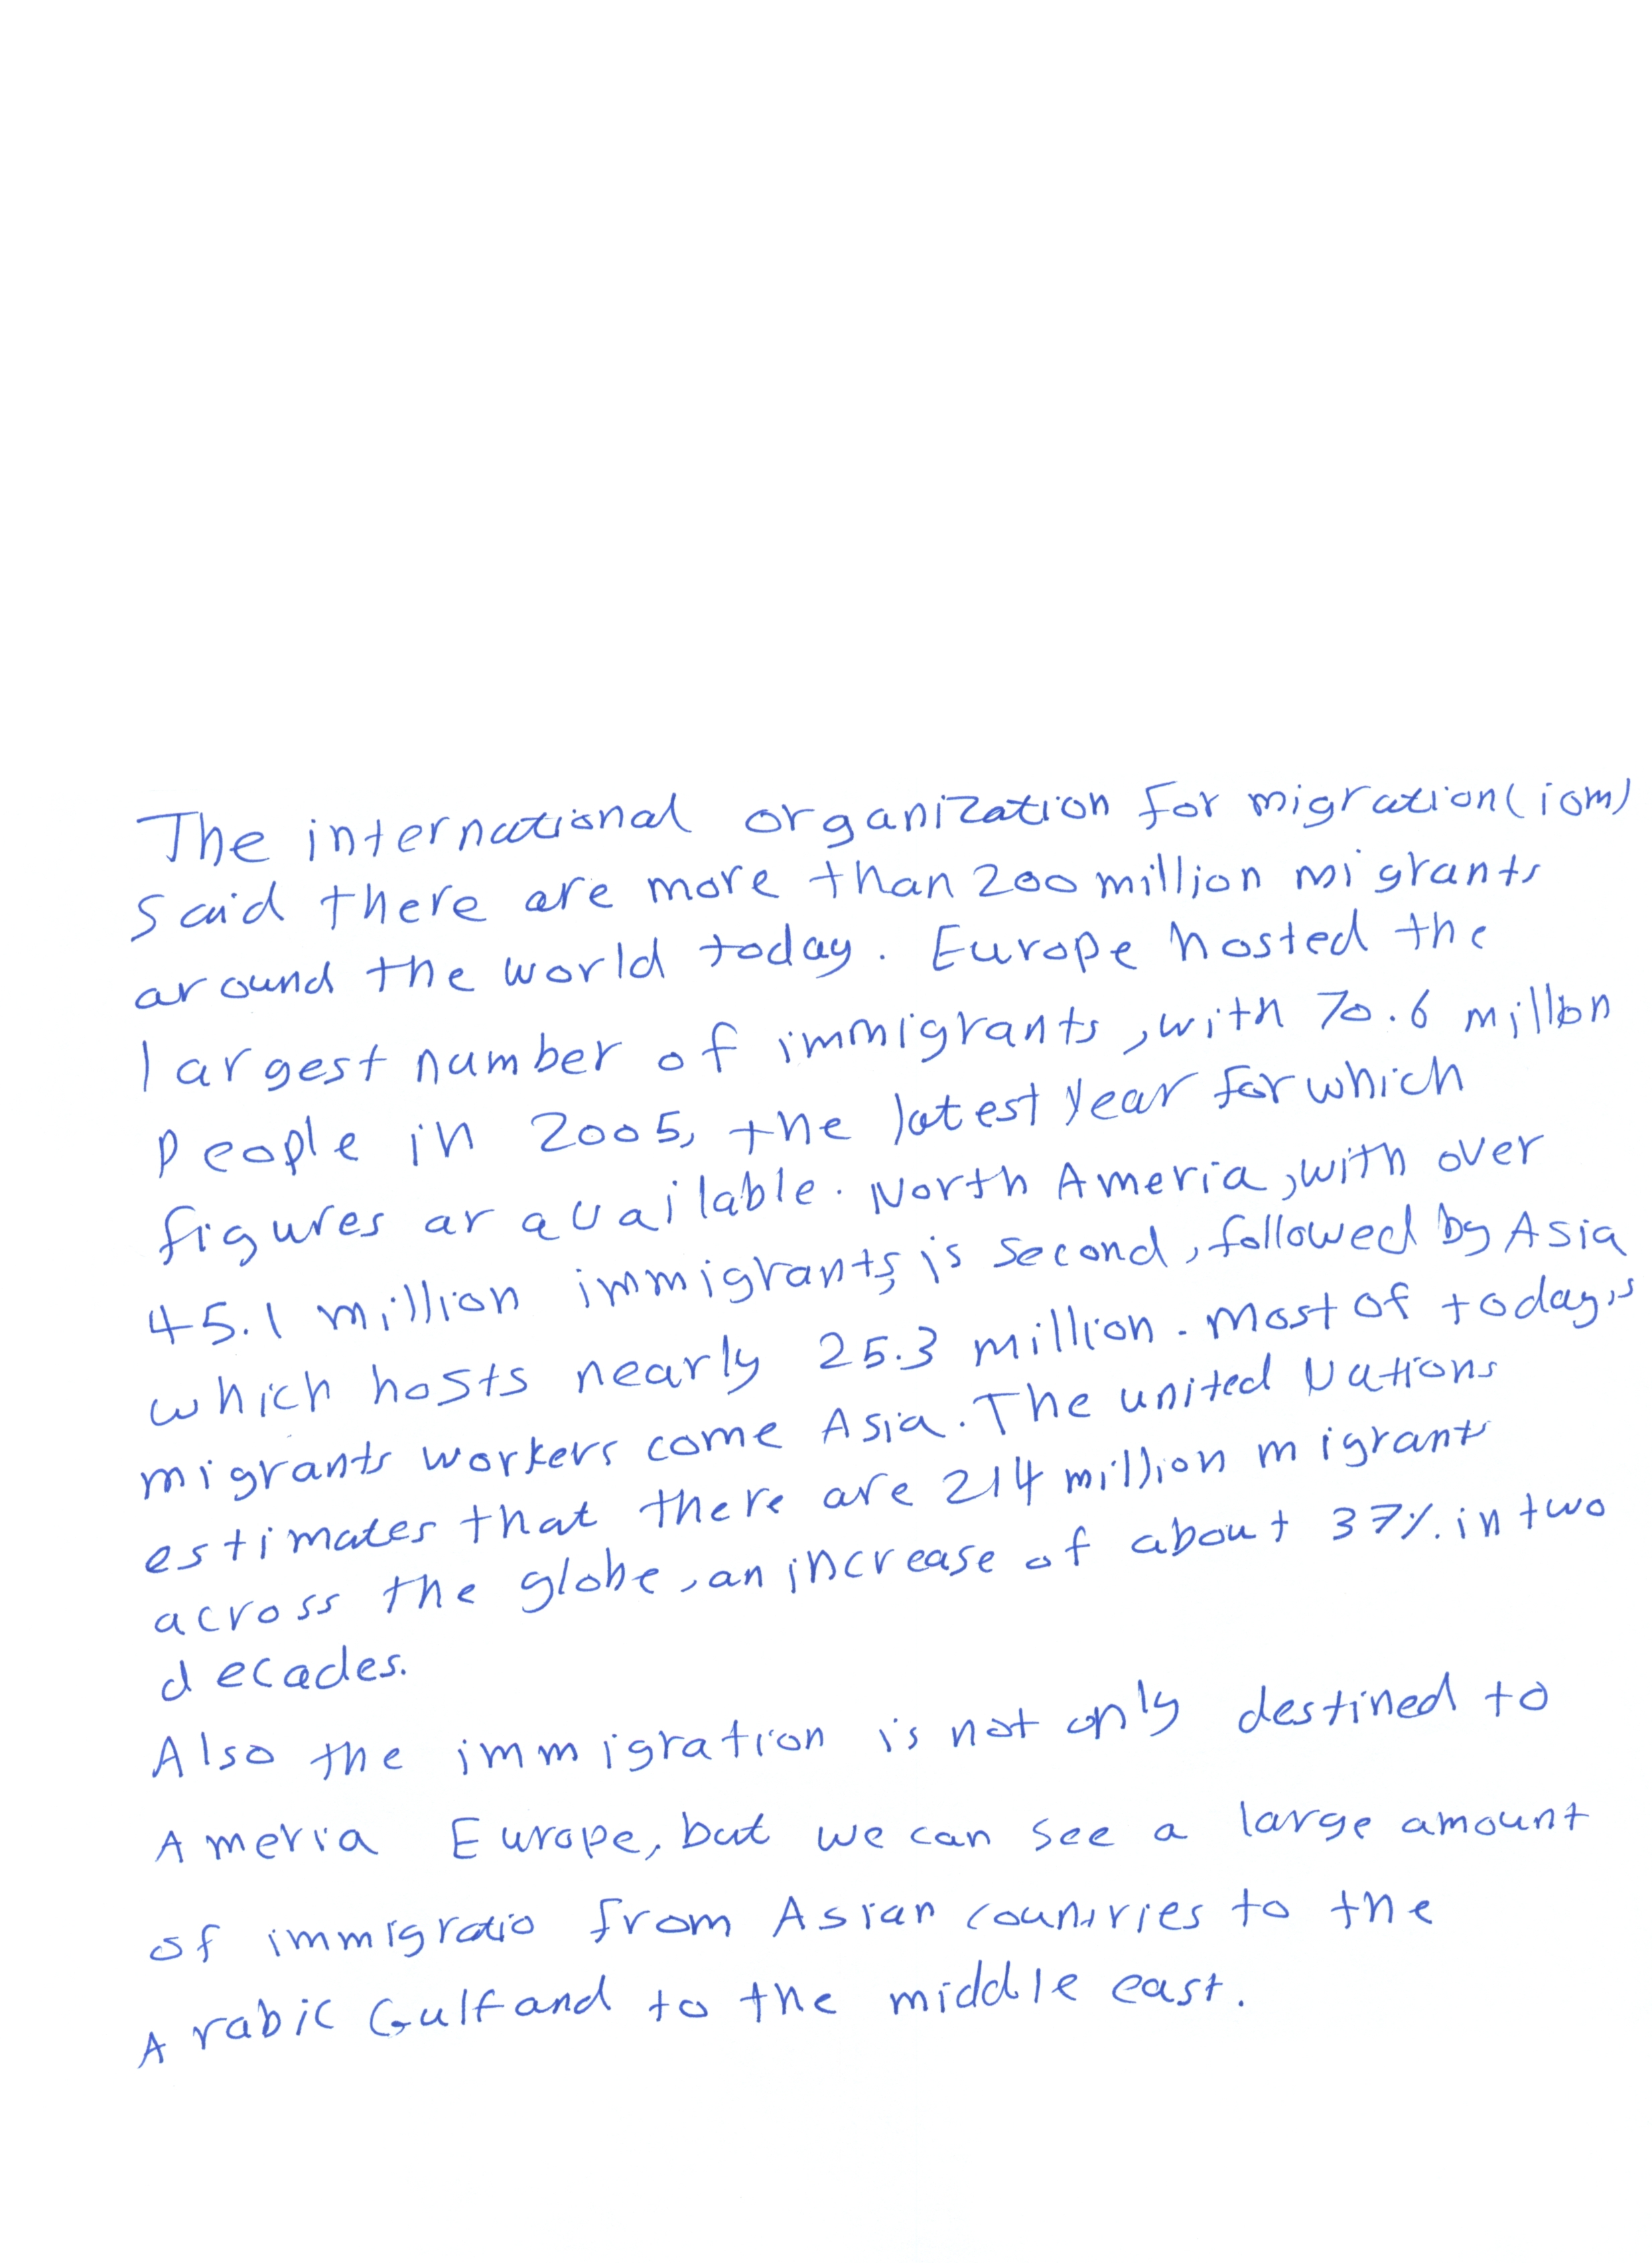 The international organization for migration (iom)
said there are more than 200 million migrants
around the world today. Europe hosted the
largest number of immigrants, with 70.6 millon
people in 2005, the latest year for which
figures ar available. North Ameria, with over
45.1 million immigrants, is second, followed by Asia
which hosts nearly 25.3 million. Most of today,s
migrants workers come Asia. The united Nations
estimates that there are 214 million migrants
across the globe, an increase of about 37% in two
decades.
Also the immigration is not only destined to
Ameria Europe, but we can see a large amount
of immigratio from Asian countries to the
Arabic Gulf and to the middle east.